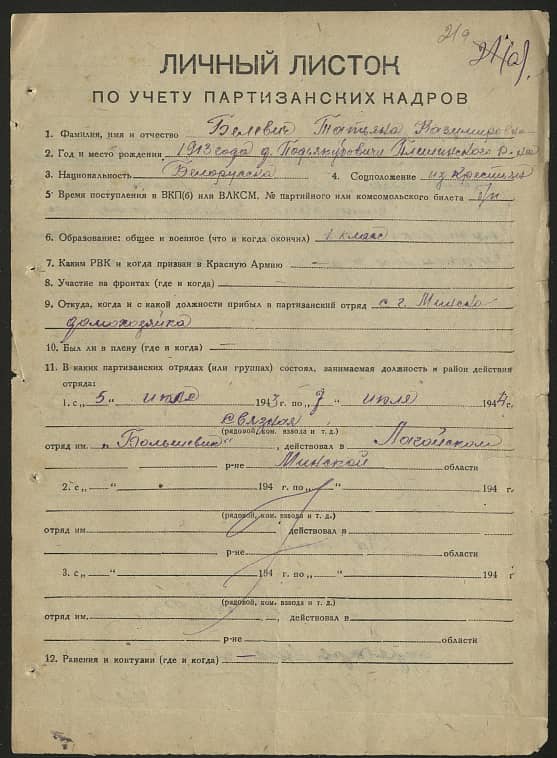 219
ЛИЧНЫЙ ЛИСТОК
ПО УЧЕТУ ПАРТИЗАНСКИХ КАДРОВ
1. Фамилия, имя и отчество Белевич Татьяна Казимировна
2. Год и место рождения 1913 года д.
3. Национальность Белорусска 4. Соцположение из крестьян
5. Время поступления в ВКП(б) или ВЛКСМ, № партийного или комсомольского билета б/п
6. Образование: общее и военное (что и когда окончил) 1 класс
7. Каким РВК и когда призван в Красную Армию —
8. Участие на фронтах (где и когда)
9. Откуда, когда и с какой должности прибыл в партизанский отряд с г. Минска
домохозяйка
10. Был ли в плену (где и когда)
11. В каких партизанских отрядах (или группах) состоял, занимаемая должность и район действия
отряда:
1. с „5“ июля 1943 г. по „7“ июля 1944 г.
связная
(рядовой, ком. взвода и т. д.)
отряд им. „Большевик“, действовал в Логойском
р-не Минской области
2. с „ “ 194 г. по „ “ 194 г.
(рядовой, ком. взвода и т. д.)
отряд им. действовал в
р-не области
3. с „ “ 194 г. по „ “ 194 г
(рядовой, ком. взвода и т. д.)
отряд им. , действовал в
р-не области
12. Ранения и контузии (где и когда) —